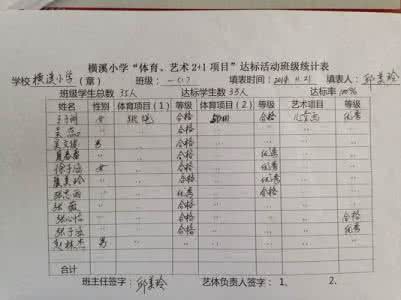 横溪小学“体育、艺术2+1项目”达标活动班级统计表
学校 横溪小学 （章） 班级： 一（1） 填表时间： 11.21 填表人：邱美玲
班级学生总数 35人 达标学生数 35人 达标率 100%
姓名 性别 体育项目（1） 等级 体育项目（2） 等级 艺术项目 等级
女 跳绳 合格 合格 儿童画 优秀
吴 合格
吴文 男 合格
合格 优秀
徐子 女 合格 优秀
美玲 合格 优秀
张 优秀 合格
张 合格
张心怡 合格 合格
张子 合格 优秀
赵林杰 男
合计
班主任签字：邱美玲 艺体负责人签字： 1、 2、